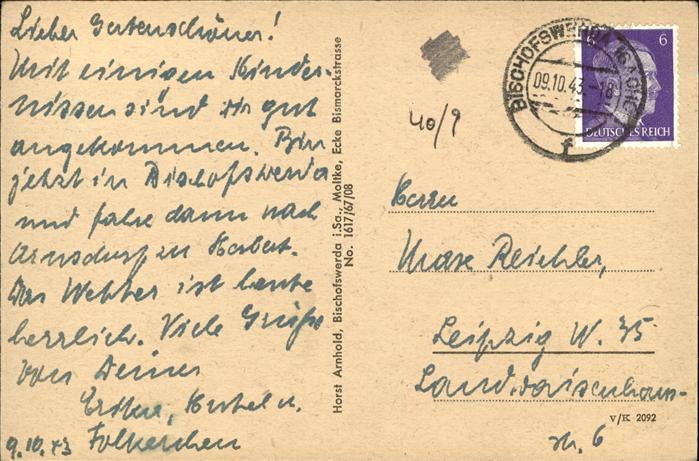 Lieber Gartenschöner!
Mit einigen Hinder-
nissen sind wir gut
angekommen. Bin
jetzt in Bischofswerda
und fahre dann nach
Arnsdorf zu Herbert.
Das Wetter ist heute
herrlich. Viele Grüße
von Deiner
Erika, u.
9.10.43
Horst Arnhold, Bischofswerda i.Sa., Moltke, Ecke Bismarckstrasse
No. 1617/67/08
40/9
BISCHOFSWERDA (SACHS)
09.10.43.-18
f
6
DEUTSCHES REICH
Herrn
Max Reichler,
Leipzig W. 35
Landwaisenhaus-
str. 6
V/K 2092